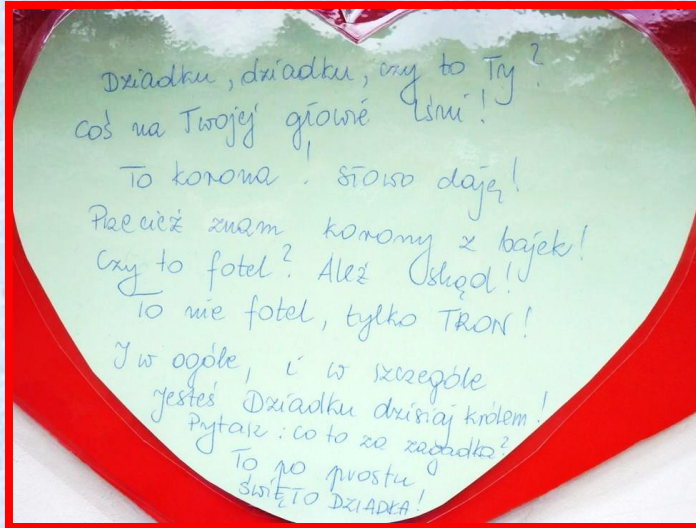 Dziadku, dziadku, czy to Ty?
Coś na Twojej głowie lśni!
To korona! Słowo daję!
Przecież znam korony z bajek!
Czy to fotel? Ależ skąd!
To nie fotel, tylko TRON!
I w ogóle, i w szczególe
jesteś Dziadku dzisiaj królem!
Pytasz: co to za zagadka?
To po prostu
ŚWIĘTO DZIADKA!